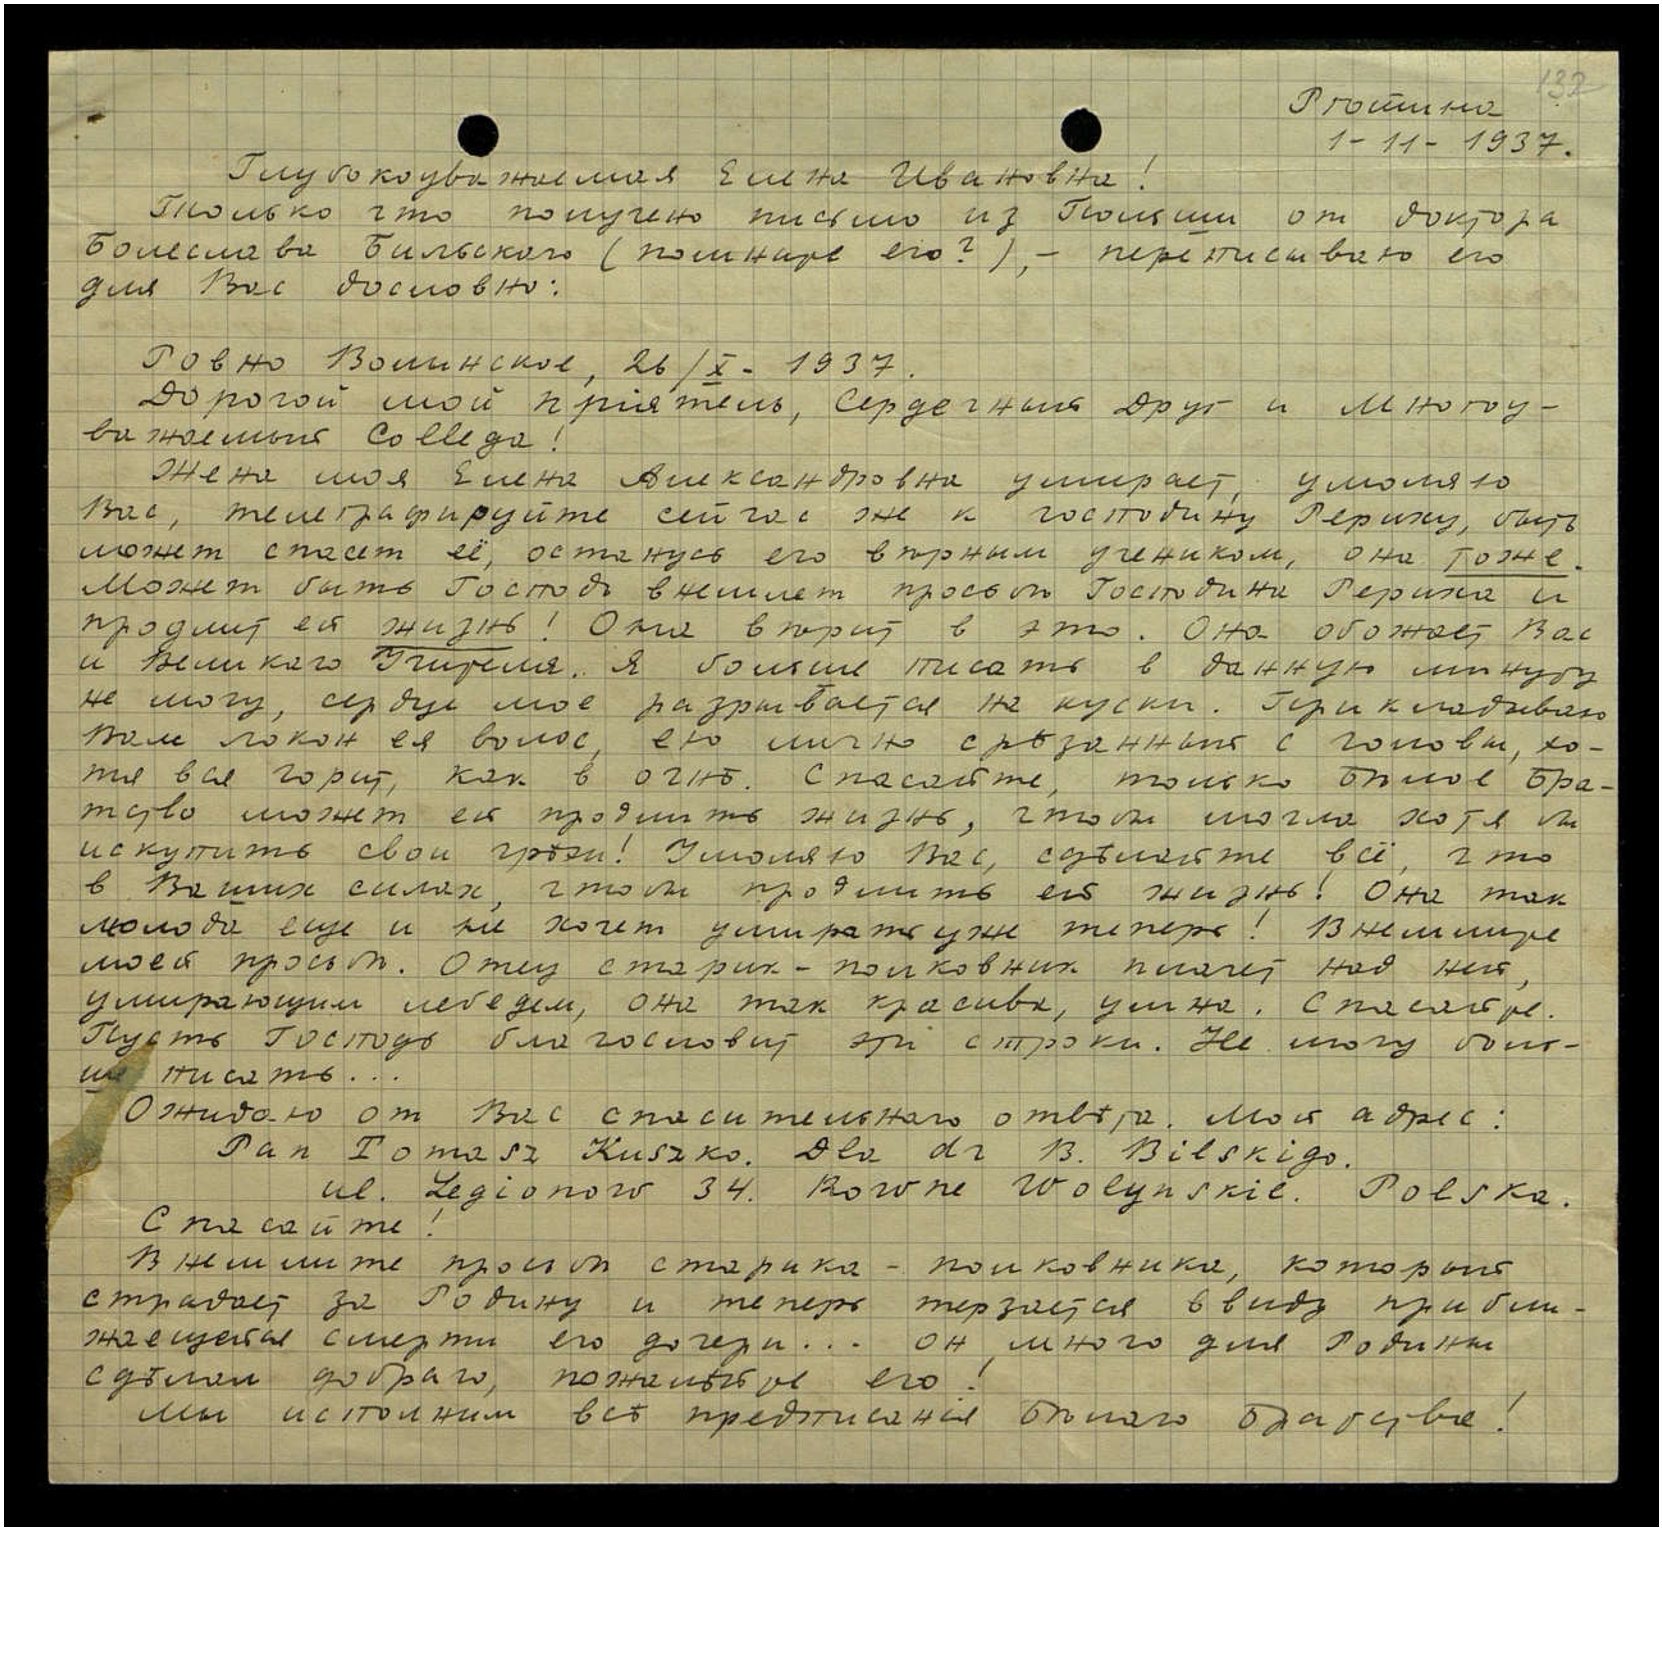 132
Pтотина
1-11-1937.
Глубокоуважаемая Елена Ивановна!
Только что получено письмо из Польши от доктора
Болеслава Бильского (помните его?), - переписываю его
для Вас дословно:
Ровно Волинское, 26/X - 1937.
Дорогой мой прiятель, Сердечный Друг и Многоу-
важаемый Collega!
Жена моя Елена Александровна умирает, умоляю
Вас, телеграфируйте сейчас же к господину Рериху, быть
может спасет её, останусь его вѣрным учеником, она тоже.
Может быть Господь внемлет просьбѣ Господина Рериха и
продлит ей жизнь! Она вѣрит в это. Она обожает Вас
и Великаго Учителя. Я больше писать в данную минуту
не могу, сердце мое разрывается на куски. Прикладываю
Вам локон ея волос, ею лично срѣзанный с головы, хо-
тя вся горит, как в огнѣ. Спасайте, только Бѣлое Бра-
тство может ей продлить жизнь, чтобы могла хотя бы
искупить свои грѣхи! Умоляю Вас, сдѣлайте всё, что
в Ваших силах, чтобы продлить ей жизнь! Она так
молода еще и не хочет умирать уже теперь! Внемлите
моей просьбѣ. Отец старик - полковник плачет над ней,
умирающим лебедем, она так красива, умна. Спасайте.
Пусть Господь благословит эти строки. Не могу боль-
ше писать...
Ожидаю от Вас спасительнаго отвѣта. Мой адрес:
Pan Tomasz Kuszko. Dla dr B. Bilskigo.
ul. Legionow 34. Rowne Wolynskie. Polska.
Спасайте!
Внемлите просьбѣ старика - полковника, который
страдает за Родину и теперь терзается ввиду прибли-
жающейся смерти его дочери... он много для Родины
сдѣлал добраго, пожалѣйте его!
Мы исполним всѣ предписанiя Бѣлаго Братства!